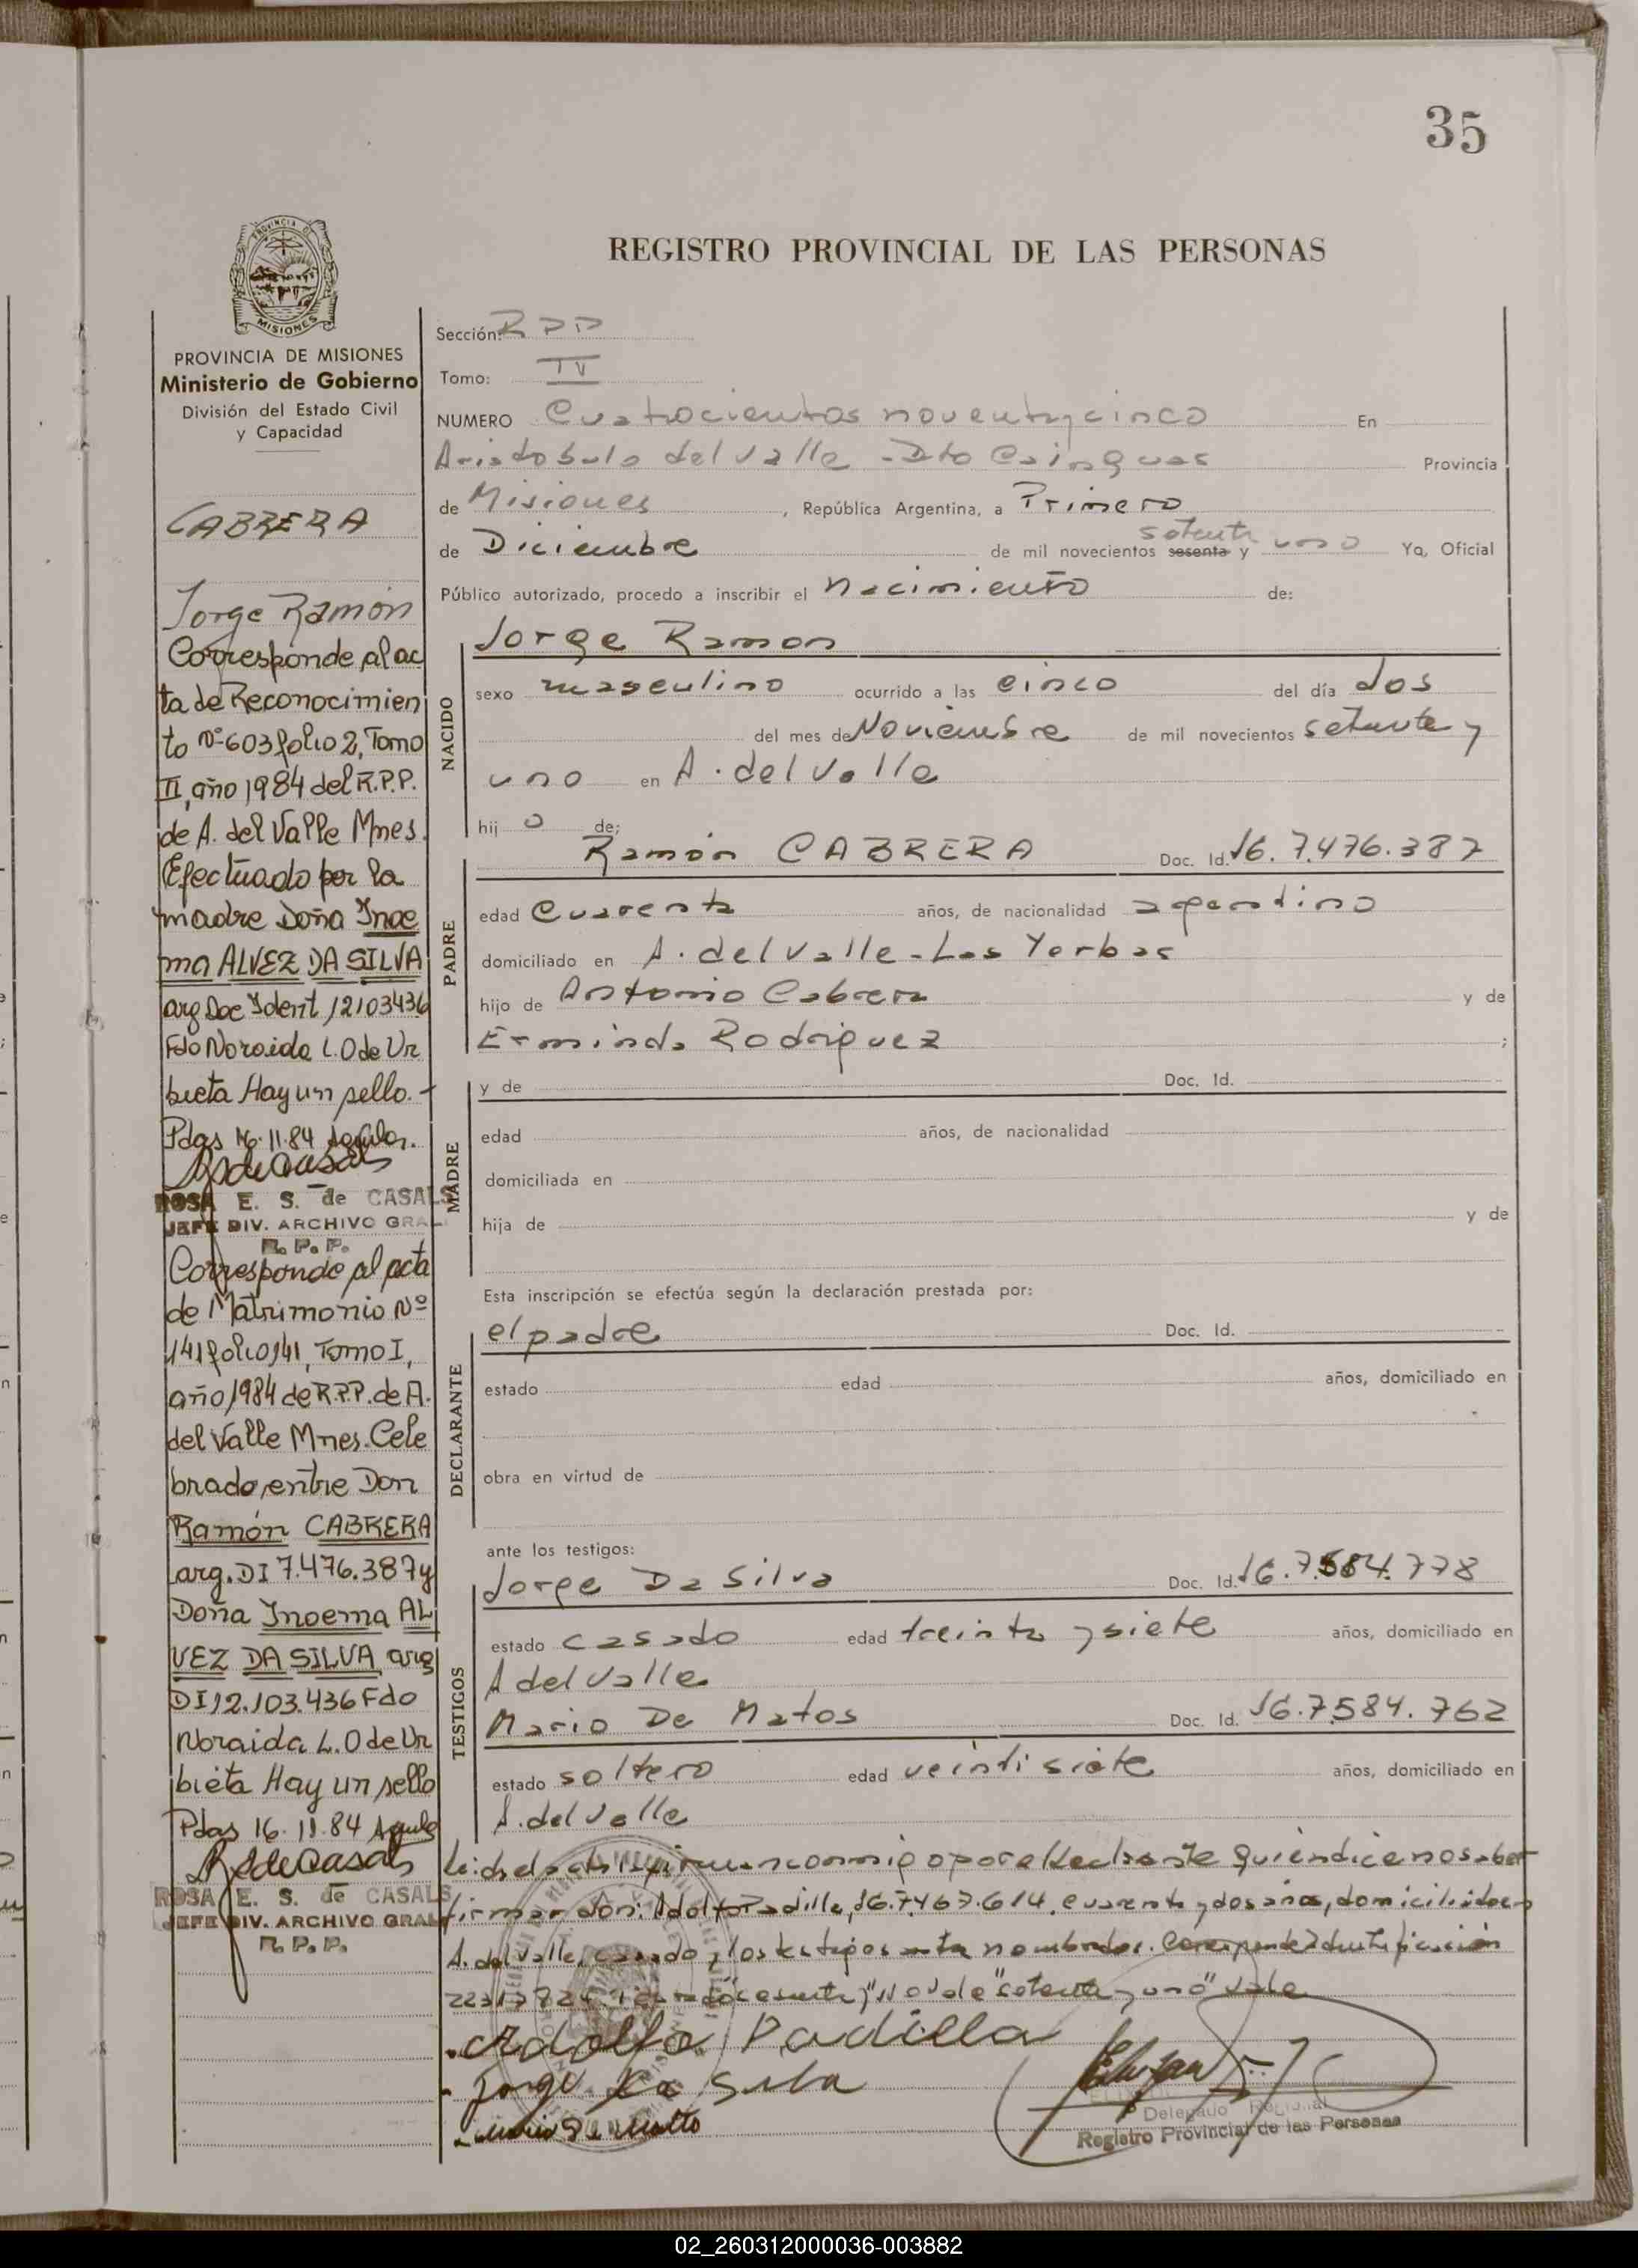 35
REGISTRO PROVINCIAL DE LAS PERSONAS
PROVINCIA DE MISIONES
Ministerio de Gobierno
División del Estado Civil
y Capacidad
CABRERA
Jorge Ramón
Corresponde al ac
ta de Reconocimien
to Nº 603 folio 2, Tomo
II, año 1984 del R.P.P.
de A. del Valle Mnes.
Efectuado por la
madre Doña Inoe
ma ALVEZ DA SILVA
arg Doc Ident 12103436
Fdo Noraida L.O de Ur
bieta Hay un sello.-
Pdas 16.11.84
ROSA E. S. de CASALS
JEFE DIV. ARCHIVO GRAL
R. P. P.
Corresponde al acta
de Matrimonio Nº
141 folio 141, Tomo I,
año 1984 de R.P.P. de A.
del Valle Mnes. Cele
brado entre Don
Ramón CABRERA
arg. DI 7.476.387 y
Doña Inoema AL
VEZ DA SILVA arg
DI 12.103.436 Fdo
Noraida L.O de Ur
bieta Hay un sello
Pdas 16.11.84
ROSA E. S. de CASALS
JEFE DIV. ARCHIVO GRAL
R. P. P.
Sección: RPP
Tomo: IV
NUMERO Cuatrocientos noventa y cinco En
Aristobulo del Valle - Dto Cainguas Provincia
de Misiones, República Argentina, a Primero
de Diciembre de mil novecientos sesenta setenta y uno Yo, Oficial
Público autorizado, procedo a inscribir el nacimiento de:
NACIDO
Jorge Ramon
sexo masculino ocurrido a las cinco del día dos
del mes de Noviembre de mil novecientos setenta y
uno en A. del Valle
hij o de:
PADRE
Ramón CABRERA Doc. Id. M. 7.476.387
edad cuarenta años, de nacionalidad argentino
domiciliado en A. del Valle - Las Yerbas
hijo de Antonio Cabrera y de
Erminda Rodriguez ;
MADRE
y de Doc. Id.
edad años, de nacionalidad
domiciliada en
hija de y de
Esta inscripción se efectúa según la declaración prestada por:
DECLARANTE
el padre Doc. Id.
estado edad años, domiciliado en
obra en virtud de
ante los testigos:
TESTIGOS
Jorge Da Silva Doc. Id. 7.584.778
estado casado edad treinta y siete años, domiciliado en
A del Valle
Mario De Matos Doc. Id. 7.584.762
estado soltero edad veintisiete años, domiciliado en
A. del Valle
Leida el acta la firman conmigo por el declarante quien dice no saber
firmar don: Adolfo Padilla, 7.467.614, cuarenta y dos años, domiciliado en
A. del Valle, casado y los testigos nombrados. Corresponde identificación
"setenta y uno" vale
Adolfo Padilla
Jorge Da Silva
Delegado Regional
Registro Provincial de las Personas
02_260312000036-003882